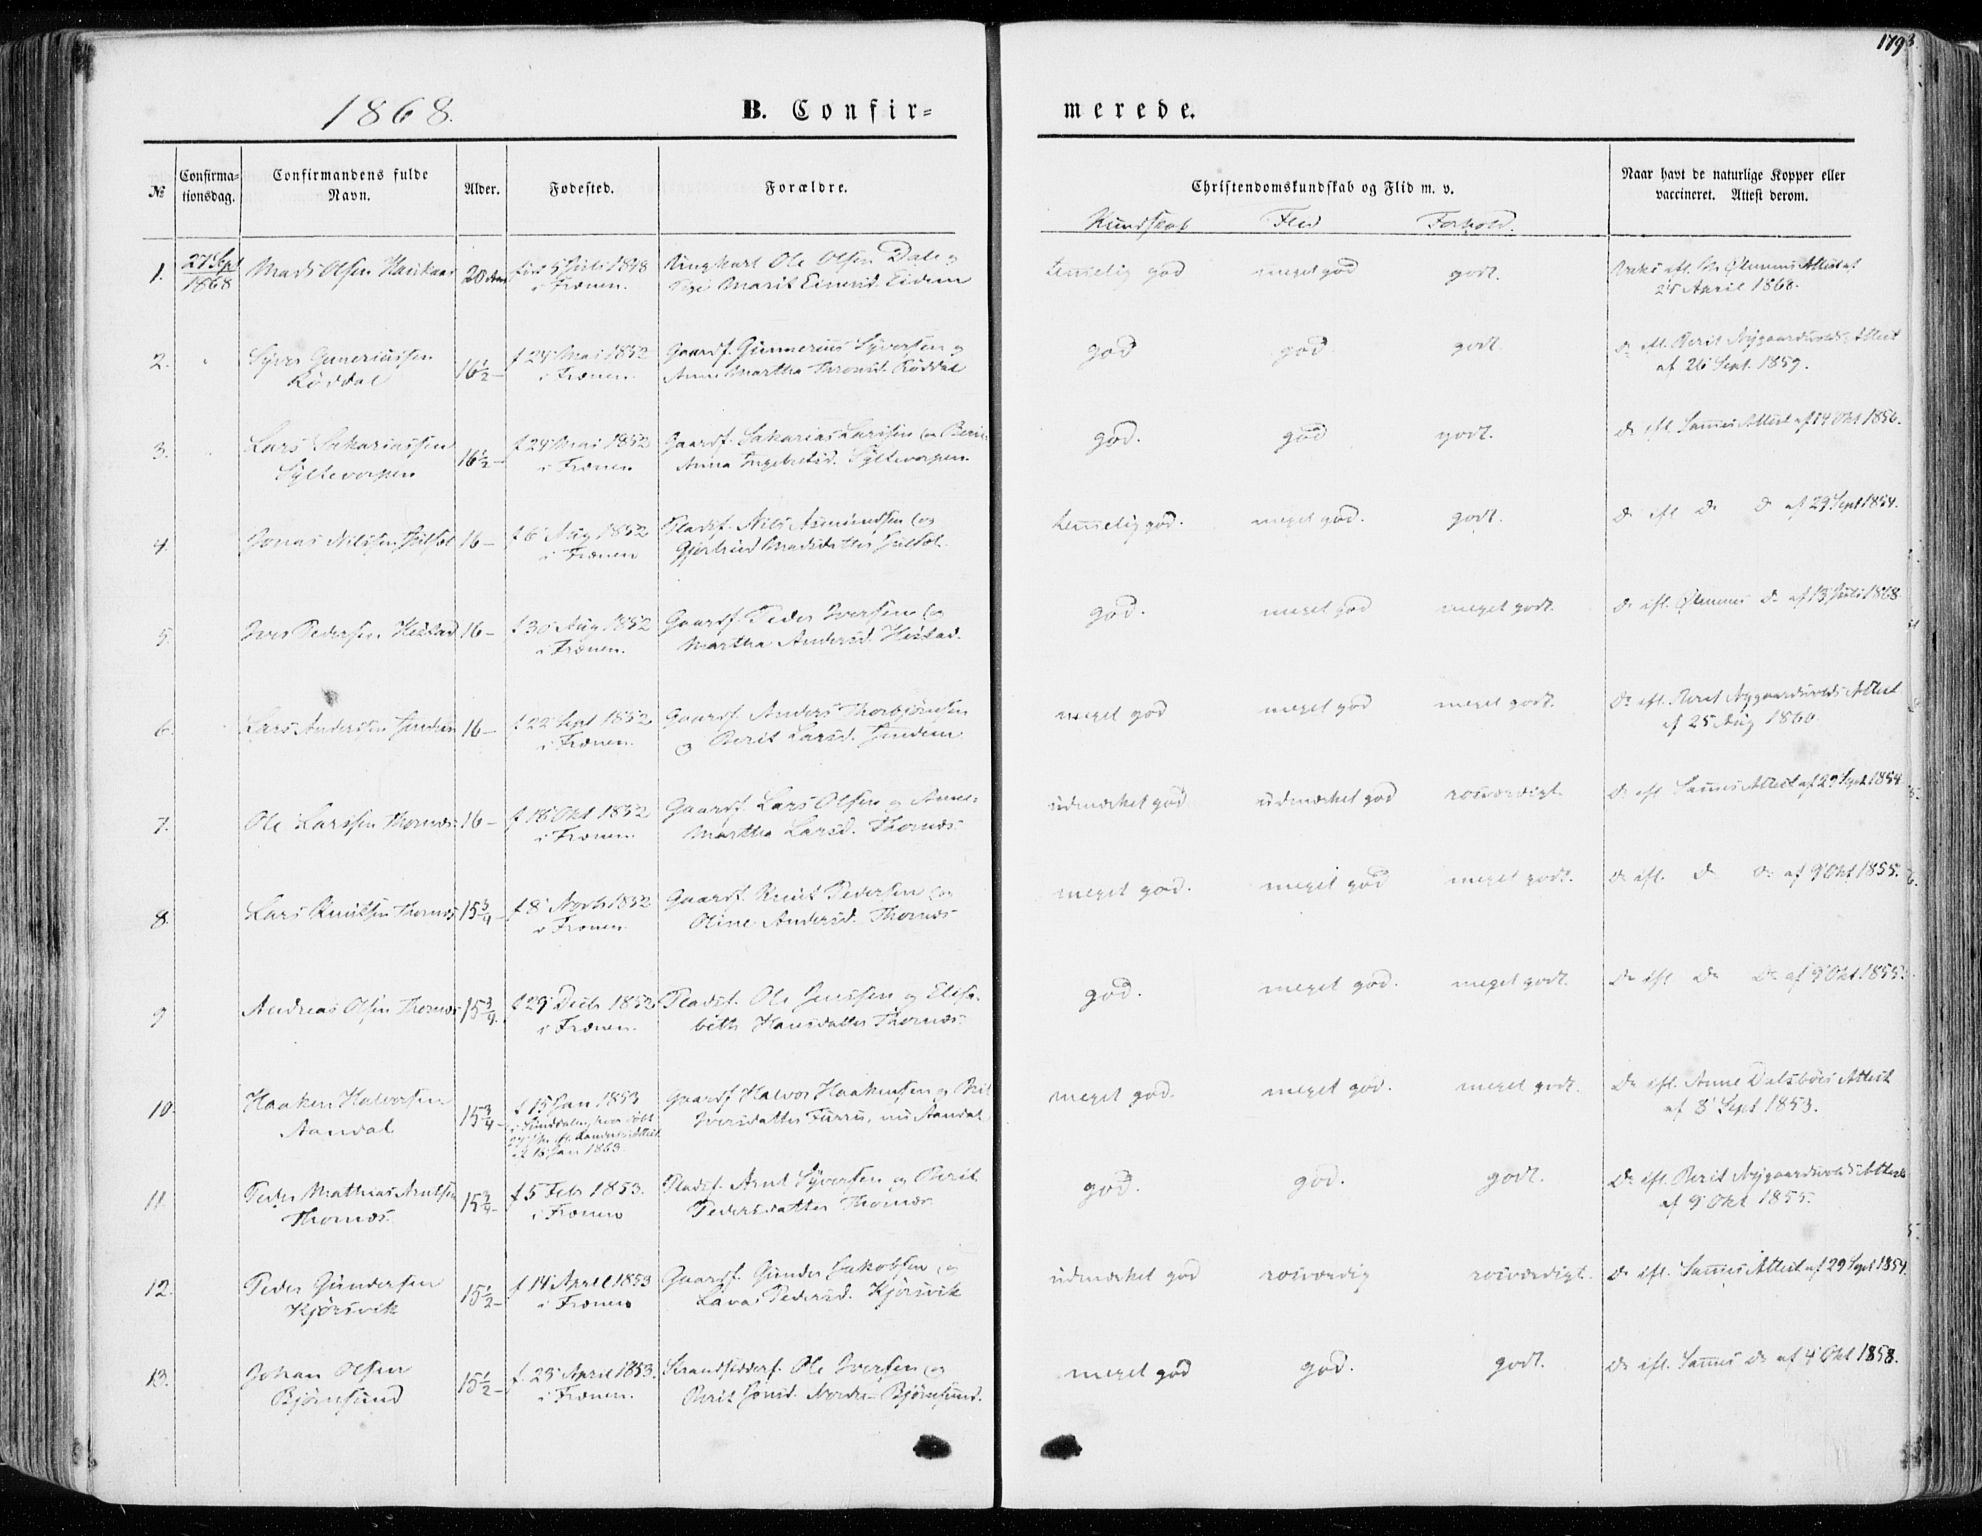 179
1868.
B. Confir=
merede.
№
Confirma-
tionsdag.
Confirmandens fulde
Navn.
Alder.
Fødested.
Forældre.
Christendomskundskab og Flid m. v.
Naar havt de naturlige Kopper eller
vaccineret. Attest derom.
Kundskab Flid Forhold.
1. 27 Sept 1868 Mads Olsen 20 Aar født 5 Juli 1848
i Frænen.
Ungkarl Ole Olsen Dale og
Pige Marit Eidem
temmelig god meget god godt.
Attest af
25 April 1868.
2. Syver Guneriussen
Røddal
16½ f 24 Mai 1852
i Frænen.
Gaardf. Gunnerius Syversen og
Anne Martha Røddal
god god godt.
Do efl. Berit Nygaardsvolds Attest
af 26 Sept. 1859.
3. Lars Sakariassen
Syltevorpen
16½ f 24 Mai 1852
i Frænen
Gaardf. Sakarias Larssen og Berit
Anna Ingebretsd. Syltevorpen
god. god godt.
Do efl. Sammes Attest af 14 Okt 1856.
4. Jonas Nilssen 16 f 6 Aug 1852
i Frænen
Pladsf. Nils Asmundsen og
Gjertrud Madsdatter
temmelig god. meget god. godt.
Do efl Do Do af 29 Sept 1854.
5. Iver Pedersen Hustad 16 f 30 Aug. 1852
i Frænen.
Gaardf. Peder Iversen og
Martha Andersd. Hustad.
god. meget god meget godt.
Do efl. Do af 13 Juli 1868
6. Lars Anderssen 16 f 22 Sept 1852
i Frænen.
Gaardf. Anders Thorbjørnsen
og Berit Larsd.
meget god meget god meget godt.
Do efl. Berit Nygaardsvolds Attest
af 25 Aug 1860
7. Ole Larssen Thornæs 16 f 18 Okt 1852
i Frænen.
Gaardf. Lars Olsen og Anne
Martha Larsd. Thornæs
udmærket god udmærket god rosværdigt
Do efl. Sammes Attest af 29 Sept. 1854
8. Lars Knutsen Thornæs 15¾ f 8 Novb 1852
i Frænen
Gaardf. Knut Pedersen og
Oline Andersd. Thornæs
meget god. meget god meget godt.
Do efl. Do Do af 9 Okt 1855.
9 Andreas Olsen Thornæs 15¾ f 29 Decb 1852
i Frænen.
Pladsf. Ole Jenssen og Elisa-
beth Hansdatter Thornæs.
god. meget god. meget godt.
Do efl Do Do af 9 Okt 1855.
10. Haaken Halvorsen
Aandal
15¾ f 15 Jan 1853
Gaardf Halvor Haakensen og Brit
Iversdatter Furru, nu Aandal
meget god. meget god. meget godt.
Do efl. Anne Dalsbøes Attest
af 3 Sept 1853.
11. Peder Mathias Arntsen
Thornæs.
15¾ f 5 Feb 1853.
i Frænen
Pladsf. Arnt Syversen og Berit
Pedersdatter Thornæs
god. god. godt.
Do efl. Berit Nygaardsvolds Attest
af 9 Okt 1855.
12. Peder Gundersen
Kjørsvik
15½ f 14 April 1853
i Frænen
Gaardf. Gunder Jakobsen og
Lava Pedersd. Kjørsvik
udmærket god rosværdig rosværdigt.
Do efl. Sammes Attest af 29 Sept 1854.
13. Johan Olsen
Bjørnsund
15½ f. 23 April 1853.
i Frænen.
Strandsidderf. Ole Iversen og
Berit Nordre Bjørnsund.
meget god god. godt.
Do efl. Sammes Do af 4 Okt 1858.